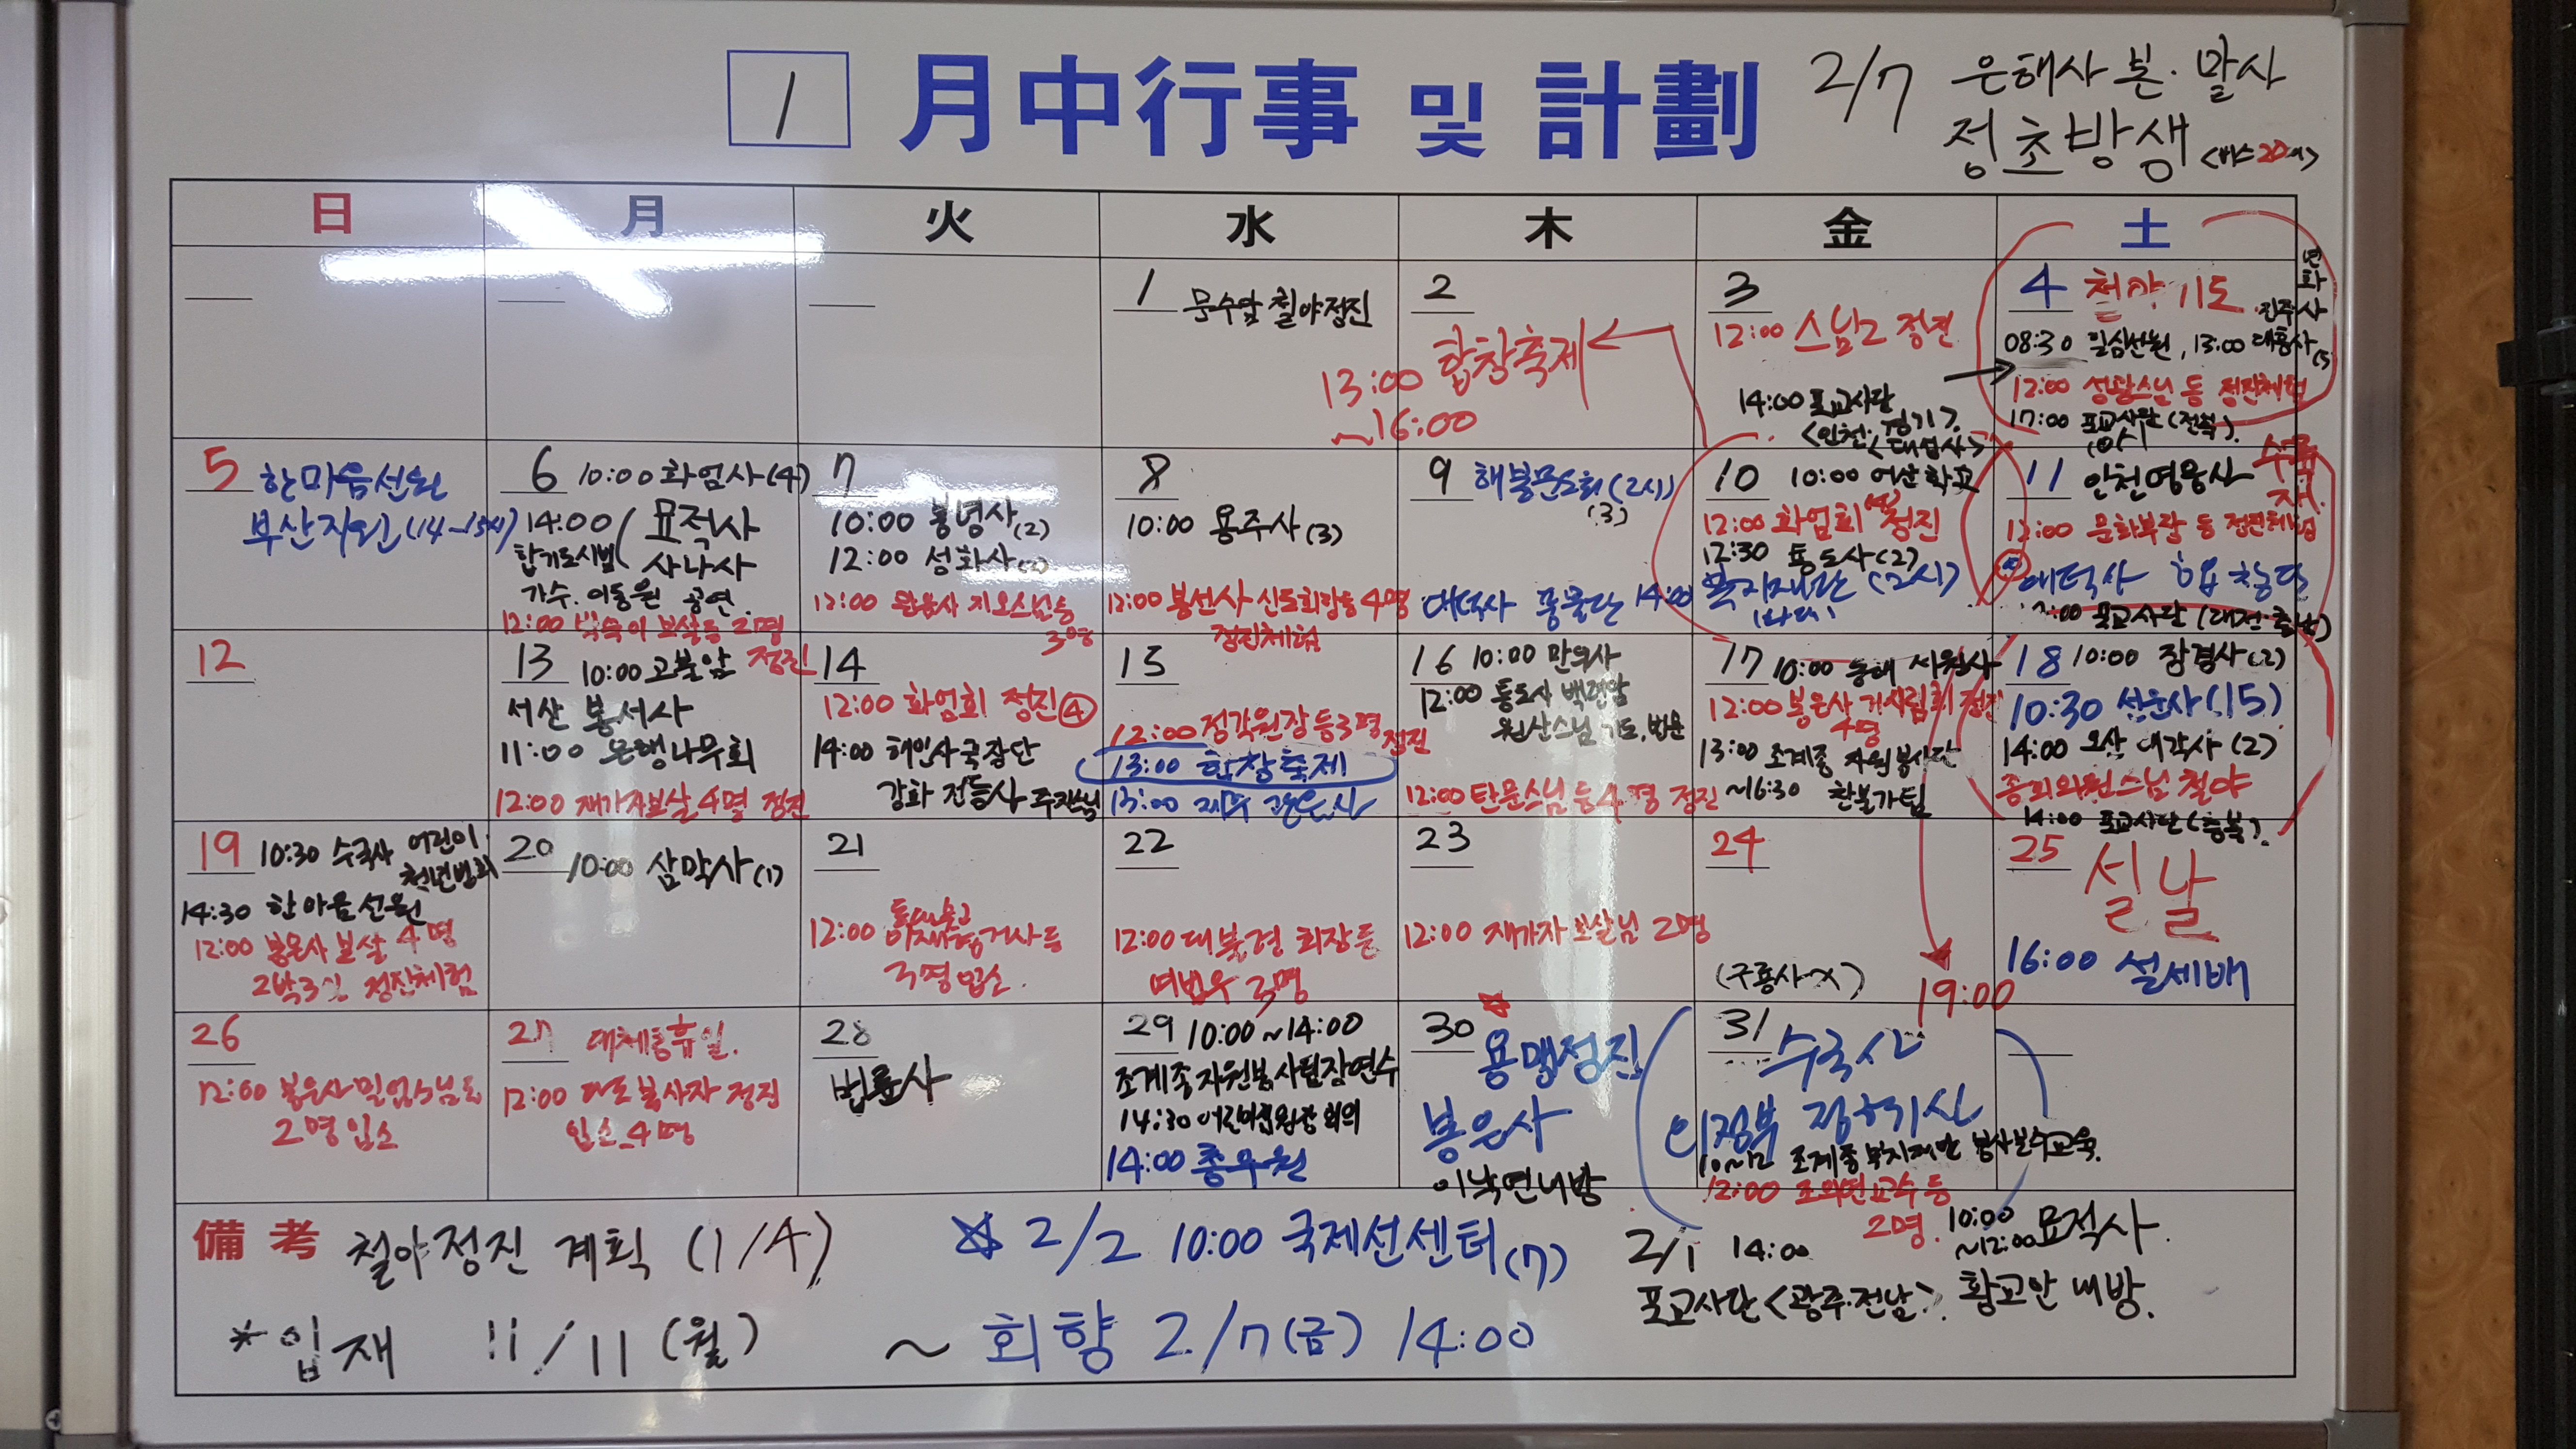 1 月中行事 및 計劃
2/7 은해사 본·말사
정초방생 <버스20대>
日 月 火 水 木 金 土
1 문수암 철야정진
2
13:00 합창축제
~16:00
3
12:00 스님2 정진
14:00 포교사단
<인천·경기>
4 철야기도
08:30 일심선원, 13:00 대흥사(5)
12:00 성환스님 등 정진체험
17:00 포교사단(전북)
5 한마음선원
부산지원(14~15시)
6 10:00 화엄사(4)
14:00 묘적사
합기도시범 사나사
가수. 이동원 공연
12:00 보살등 2명
정진
7
10:00 봉녕사(2)
12:00 성화사
12:00 지오스님등
3명
8
10:00 용주사(3)
12:00 봉선사 신도회장등 4명
정진체험
9 해불문도회(2시)
(3)
대덕사 풍물단 14:00
10 10:00 어산학교
12:00 화엄회 정진
12:30 통도사(2)
복지재단(2시)
11 인천영웅사
수륙재
12:00 문화부장 등 정진체험
대덕사 합창단
포교사단(대전·충남)
12
13 10:00 고불암
서산 봉서사
11:00 은행나무회
12:00 재가자보살4명 정진
14
12:00 화엄회 정진④
14:00 해인사국장단
강화 전등사 주지스님
15
12:00 정각원장등3명 정진
13:00 합창축제
13:00 제주 관음사
16 10:00 만의사
12:00 통도사 백련암
원산스님 기도, 법문
12:00 탄문스님등4명 정진
17 10:00 동해 삼원사
12:00 봉은사 거사림회 정진
4명
13:00 조계종 자원봉사단
~16:30 찬불가팀
18 10:00 장경사(2)
10:30 선운사(15)
14:00 오산 대각사(2)
종회의원스님 철야
14:00 포교사단(충북)
19 10:30 수국사 어린이
청년법회
14:30 한마음선원
12:00 봉은사 보살 4명
2박3일 정진체험
20 10:00 삼막사(1)
21
12:00 거사등
3명 입소
22
12:00 대불련 회장등
여법우 3명
23
12:00 재가자 보살님 2명
24
(구룡사 X)
19:00
25 설날
16:00 설세배
26
12:00 봉은사
2명 입소
27 대체공휴일.
12:00 봉사자 정진
입소 4명
28
법륜사
29 10:00~14:00
조계종자원봉사팀장연수
14:30 회의
14:00 총무원
30 용맹정진
봉은사
이낙연내방
31 수국사
의정부
10~12 조계종복지재단 봉사보수교육.
12:00 교수등
2명.
備考 철야정진 계획 (1/4)
☆ 2/2 10:00 국제선센터(7)
2/1 14:00
포교사단<광주·전남>.
10:00
~12:00 묘적사.
황교안 내방.
*입재 11/11(월) ~ 회향 2/7(금) 14:00